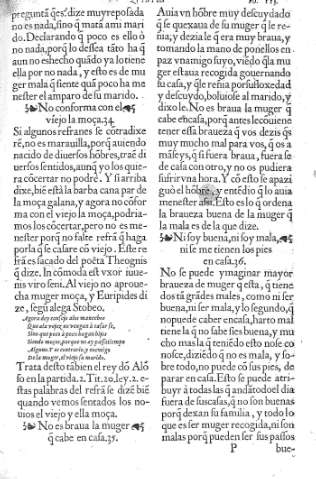 pregunta q̃ es: dize muy reposada
no es nada, sino q̃ matã ami mari
do. Declarando q̃ poco es ello ò
no nada, porq̃ lo dessea tãto ha q̃
aun no es hecho quãdo ya lo tiene
ella por no nada, y esto es de mu
ger mala q̃ siente quã poco ha me
nester el amparo de su marido.
No conforma con el
viejo la moça. 34
Si algunos refranes se cõtradixe
rẽ, no es marauilla, porq̃ auiendo
nacido de diuersos hõbres, traẽ di
uersos sentidos, aunq̃ yo los quie
ra cõcertar no podrè. Y si arriba
dixe, biẽ està la barba cana par de
la moça galana, y agora no cõfor
ma con el viejo la moça, podria-
mos los cõcertar, pero no es me-
nester porq̃ no falte refrã q̃ haga
por la q̃ se casare cõ viejo. Este re
frã es sacado del poëta Theognis
q̃ dize. In cõmoda est vxor iuue-
nis viro seni. Al viejo no aproue-
cha muger moça, y Euripides di
ze, segũ alega Stobeo.
Agora doy consejo alos mancebos
Que ala vejez no vengan à casarse,
Sino que poco à poco hagan hijos
Siendo moços, porque no ay passatiempo
Alguno. Y es contrario, y enemigo
De la muger, el viejo su marido.
Trata desto tãbien el rey dõ Alõ
so en la partida. 2. Tit. 20. ley. 2. es-
tas palabras del refrã se dizẽ biẽ
quando vemos sentados los no-
uios el viejo y ella moça.
No es braua la muger
q̃ cabe en casa. 35.
Auia vn hõbre muy descuydado
q̃ se quexaua de su muger q̃ le re-
nia, y dezia le q̃ era muy braua, y
tomando la mano de ponellos en
paz vn amigo suyo, viẽdo q̃ la mu
ger estaua recogida gouernando
su casa, y q̃ le reñia por su floxedad
y descuydo, boluiose al marido, y
dixole. No es braua la muger q̃
cabe en casa, porq̃ antes le cõuiene
tener essa braueza q̃ vos dezis q̃ es
muy mucho mal para vos, q̃ os a
màseys, q̃ si fuera braua, fuera se
de casa con otro, y no os pudiera
sufrir vna hora. Y cõ esto se apazi
guò el hõbre, y entẽdio q̃ lo auia
menester assi. Esto es lo q̃ ordena
la braueza buena de la muger q̃
la mala es de la que dize.
Ni soy buena, ni soy mala,
ni se me tienen los pies
en casa. 36.
No se puede ymaginar mayor
braueza de muger q̃ esta, q̃ tiene
dos tã grãdes males, como ni ser
buena, ni ser mala, y lo segundo, q̃
no puede caber en casa, harto mal
tiene la q̃ no sabe si es buena, y mu
cho mas la q̃ teniẽdo esto no se co
nosce, diziẽdo q̃ no es mala, y so-
bre todo, no puede cõ sus pies, de
parar en casa. Esto se puede atri-
buyr à todas las q̃ andã todo el dia
fuera de sus casas, q̃ no son buenas
porq̃ dexan su familia, y todo lo
que es ser muger recogida, ni son
malas porq̃ pueden ser sus passos
P bue-